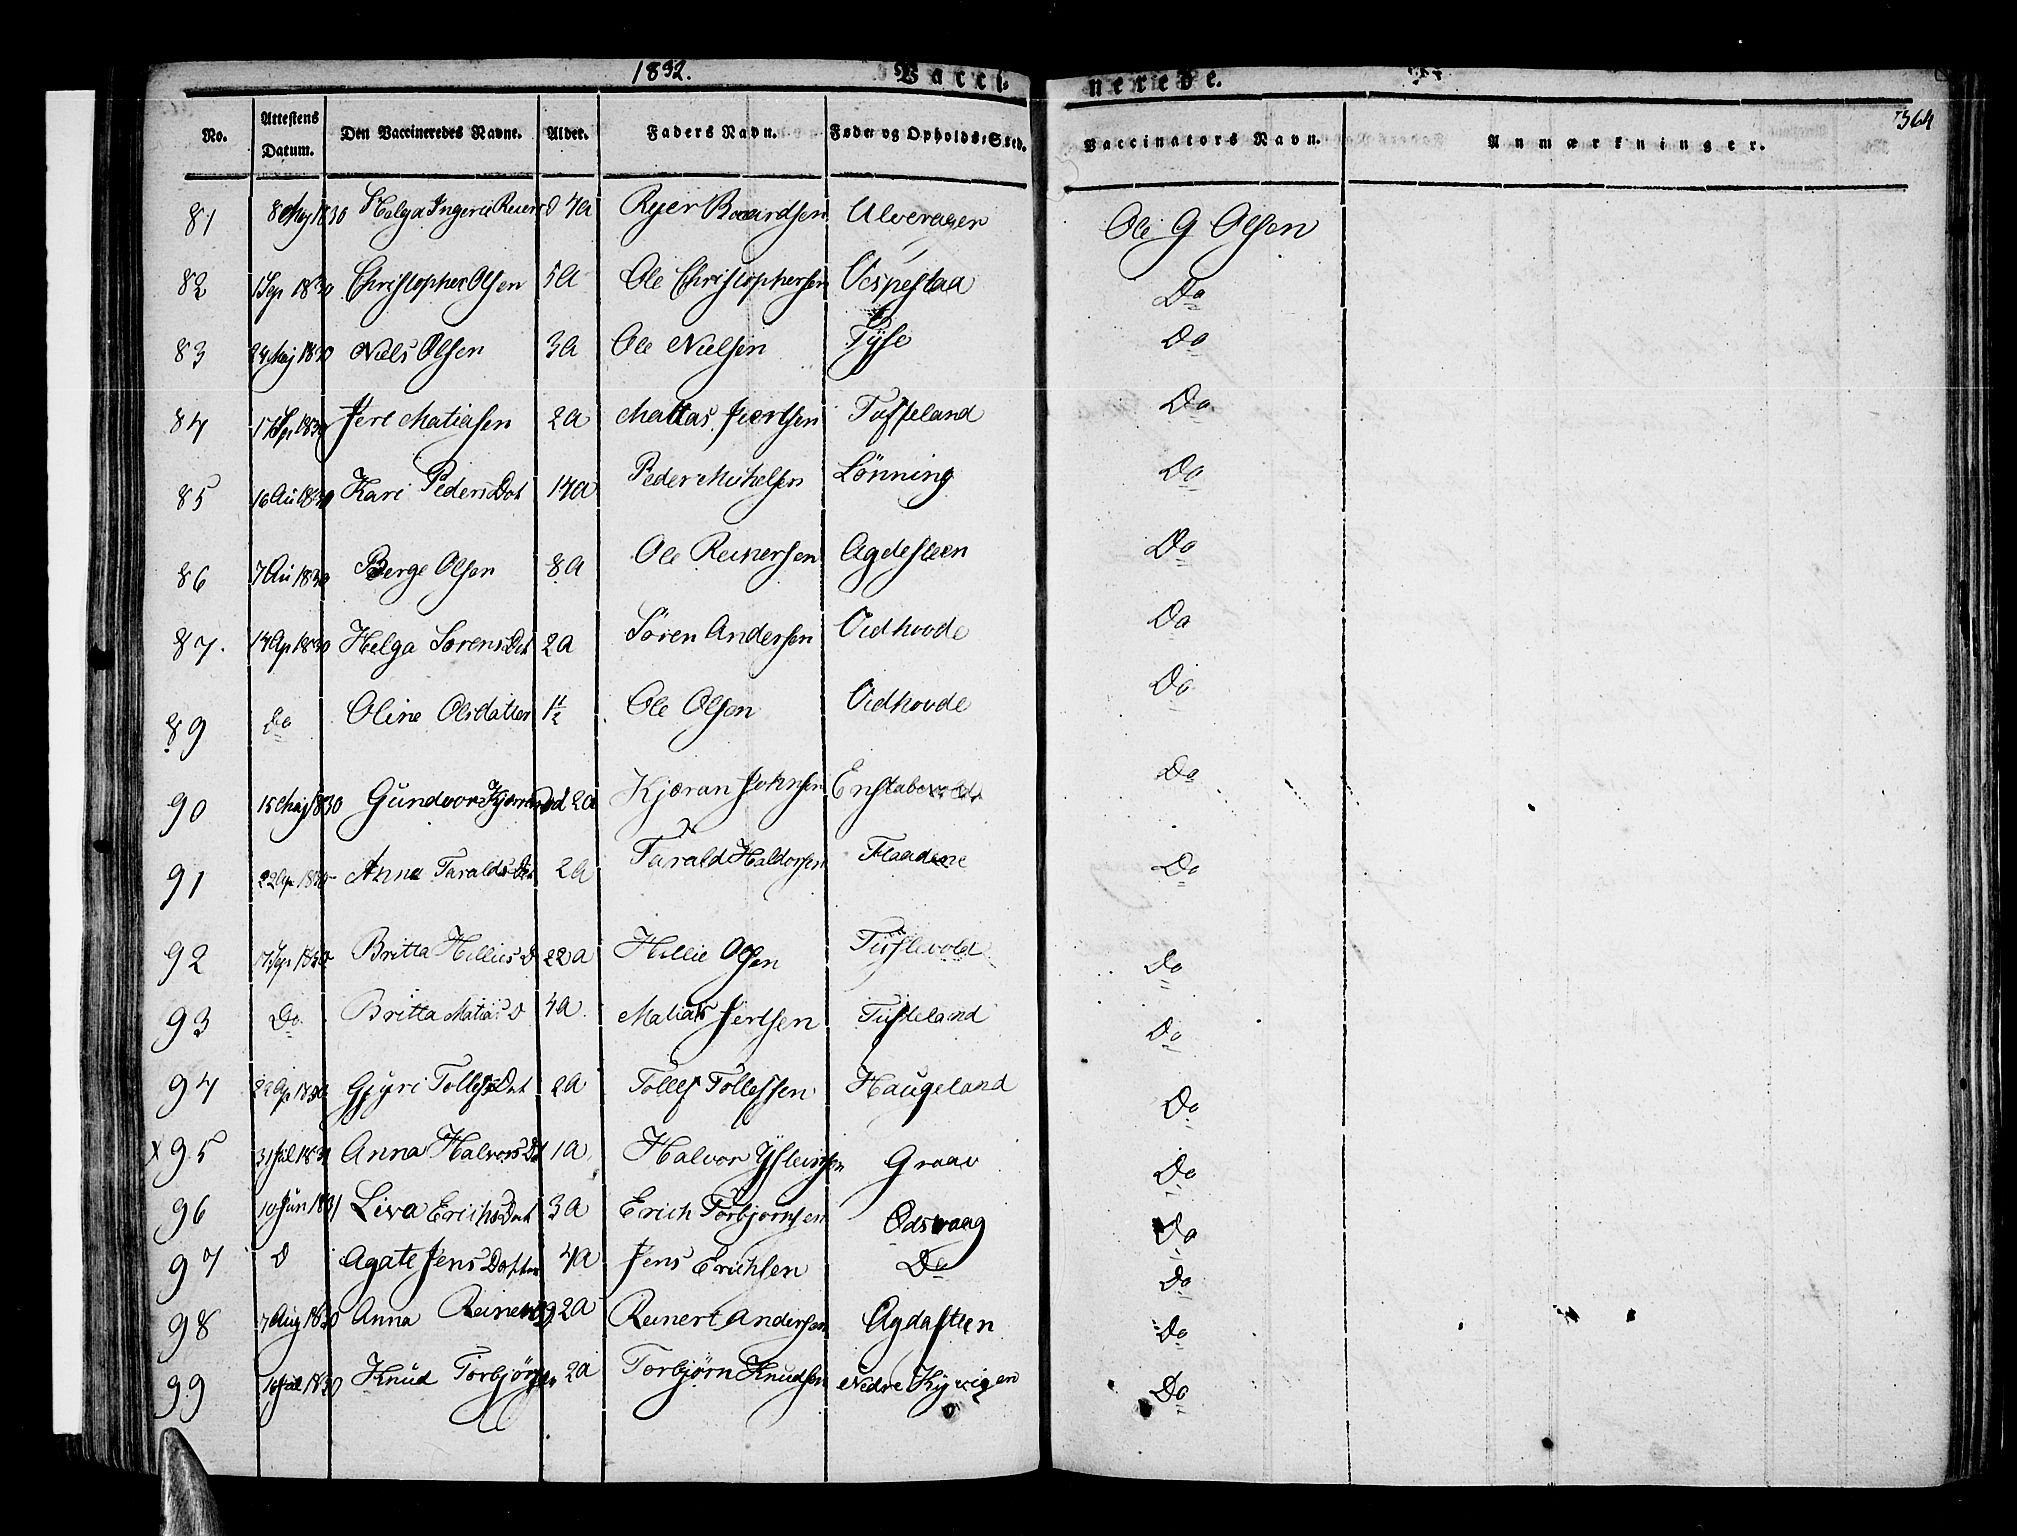 1832. Vacci-nerede. 364
No. Attestens Datum. Den Vaccineredes Navne. Alder. Faders Navn. Føde- og Opholds-Sted. Vaccinators Navn. Anmærkninger.
81 8 Maj 1830 Helga Ingerie Reiersd 4a Ryer Baardsen Alveragen Ole G Olsen
82 1 Sep 1830 Christopher Olsen 5a Ole Christophersen Vespestaa Do
83 24 Maj 1830 Niels Olsen 3a Ole Nielsen Tyse Do
84 17 Sp 1830 Jert Matiasen 2a Mattias Jiertsen Tufteland Do
85 16 Au 1830 Kari Peders Dat 14a Peder Michelsen Lønning Do
86 7 Au 1830 Berge Olsen 8a Ole Reinersen Agdesteen Do
87. 14 Ap 1830 Helga Sørens Dat 2a Søren Andersen Vidhovde Do
89 Do Oline Olsdatter 1½ Ole Olsen Vidhovde Do
90 15 Maj 1830 Gundvor 2a Kjøran Johnsen Enstabevold Do
91 22 Ap 1830 Anna Taralds Dat 2a Tarald Haldorsen Flaadene Do
92 17 Sp 1830 Britta Hellies D 22a Hellie Olsen Tuftevold Do
93 Do Britta Matias D 4a Matias Jertsen Tufteland Do
94 22 Ap 1830 Gjyri Tollefs Dat 2a Tollef Tollefsen Haugeland Do
x 95 31 Jul 1831 Anna Halvors Dt 1a Halvor Graav Do
96 10 Jun 1831 Liva Erichs Dat 3a Erich Torbjørnsen Odsvaag Do
97 D Agate Jens Datter 4a Jens Erichsen Do Do
98 7 Aug 1830 Anna Reiners D 2a Reinert Andersen Agdasteen Do
99 Jul 1830 Knud Torbjørnsen 2a Torbjørn Knudsen Nedre Kyvigen Do